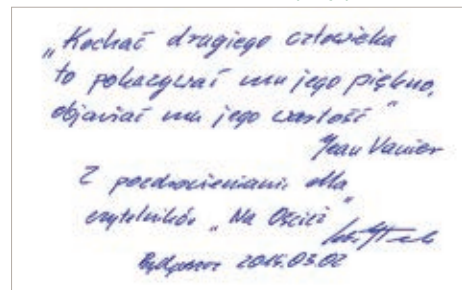 „Kochać drugiego człowieka
to pokazywać mu jego piękno,
objawiać mu jego wartość"
Jean Vanier
Z pozdrowieniami dla
czytelników „Na Oścież"
Bydgoszcz 2014.03.02